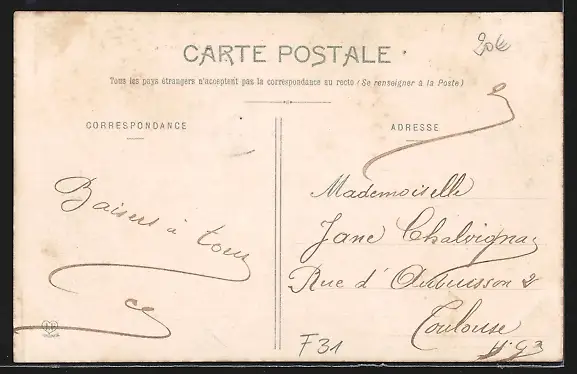 20€
CARTE POSTALE
Tous les pays étrangers n'acceptent pas la correspondance au recto (Se renseigner à la Poste)
CORRESPONDANCE
ADRESSE
Baisers à tous
Mademoiselle
Jane Chalvignac
Rue d'Aubuisson 2
Toulouse
F31